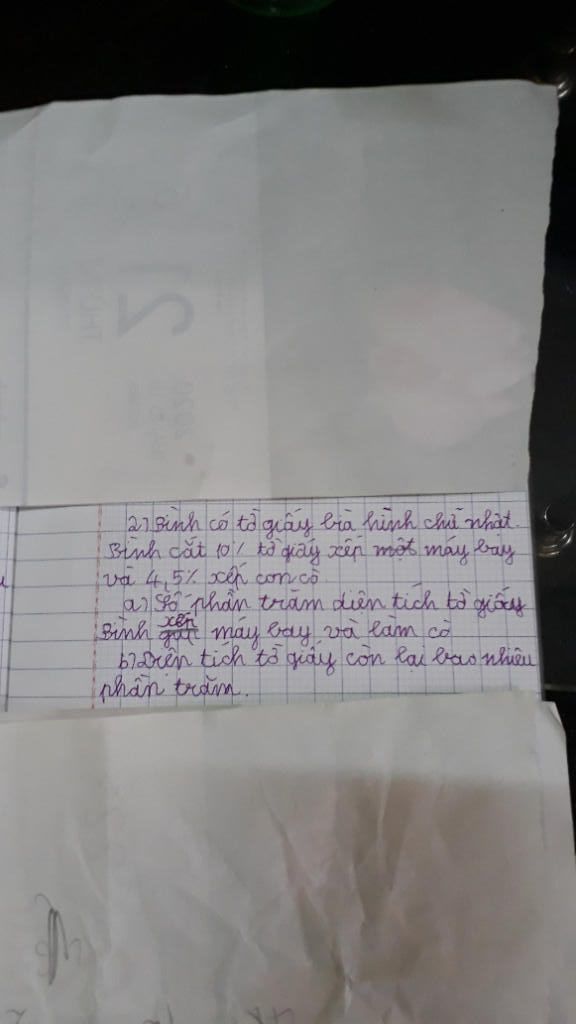 2) Bình có tờ giấy bìa hình chữ nhật.
Bình cắt 10% tờ giấy xếp một máy bay
và 4,5% xếp con cò
a) Số phần trăm diện tích tờ giấy
Bình xếp máy bay và làm cò
b) Diện tích tờ giấy còn lại bao nhiêu
phần trăm.